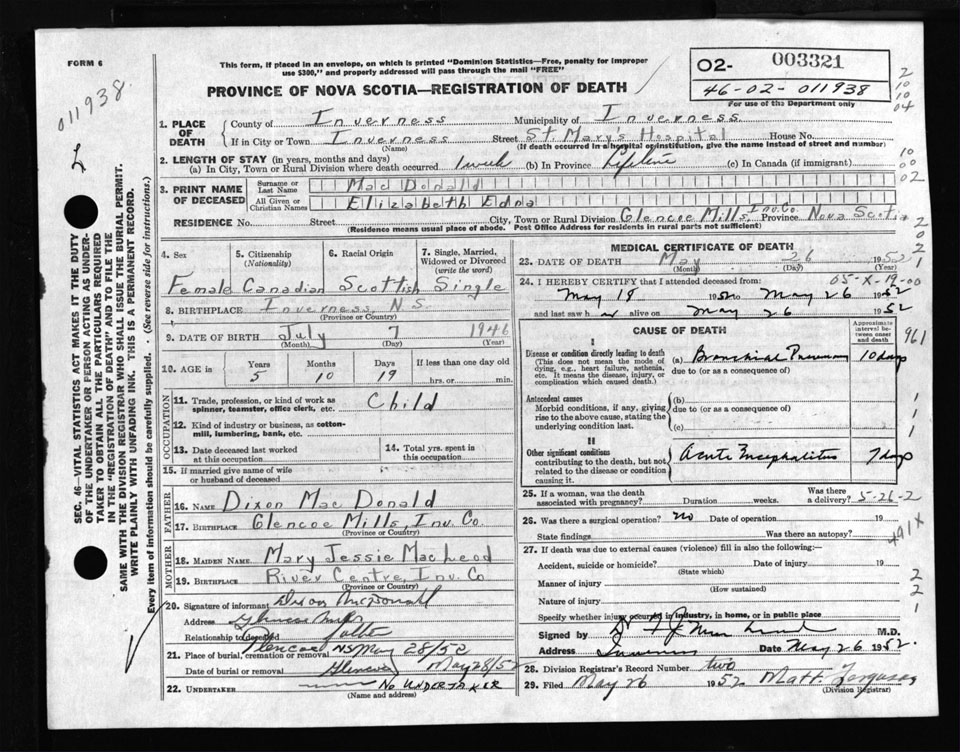 FORM 6
This form, if placed in an envelope, on which is printed "Dominion Statistics—Free, penalty for improper
use $300," and properly addressed will pass through the mail "FREE"
02- 003321
46-02-011938
For use of the Department only
PROVINCE OF NOVA SCOTIA—REGISTRATION OF DEATH
011938
2
10
10
04
1. PLACE OF DEATH
County of Inverness Municipality of Inverness
If in City or Town Inverness Street St. Mary's Hospital House No.
(Name) (If death occurred in a hospital or institution, give the name instead of street and number)
2. LENGTH OF STAY (in years, months and days)
(a) In City, Town or Rural Division where death occurred 1 week (b) In Province Lifetime (c) In Canada (if immigrant)
10
00
02
3. PRINT NAME OF DECEASED
Surname or Last Name Mac Donald
All Given or Christian Names Elizabeth Edna
RESIDENCE No. Street City, Town or Rural Division Glencoe Mills, Inv. Co. Province Nova Scotia
(Residence means usual place of abode. Post Office Address for residents in rural parts not sufficient)
2
0
2
1
SEC. 46—VITAL STATISTICS ACT MAKES IT THE DUTY
OF THE UNDERTAKER OR PERSON ACTING AS UNDER-
TAKER TO OBTAIN ALL THE PARTICULARS REQUIRED
IN THE "REGISTRATION OF DEATH" AND TO FILE THE
SAME WITH THE DIVISION REGISTRAR WHO SHALL ISSUE THE BURIAL PERMIT.
WRITE PLAINLY WITH UNFADING INK. THIS IS A PERMANENT RECORD.
Every item of information should be carefully supplied. (See reverse side for instructions.)
4. Sex
5. Citizenship (Nationality)
6. Racial Origin
7. Single, Married, Widowed or Divorced (write the word)
Female Canadian Scottish Single
8. BIRTHPLACE Inverness, N.S.
(Province or Country)
9. DATE OF BIRTH July 7 1946
(Month) (Day) (Year)
10. AGE IS
Years Months Days If less than one day old
5 10 19 hrs. or min.
OCCUPATION
11. Trade, profession, or kind of work as
spinner, teamster, office clerk, etc. Child
12. Kind of industry or business, as cotton-
mill, lumbering, bank, etc.
13. Date deceased last worked
at this occupation
14. Total yrs. spent in
this occupation
15. If married give name of wife
or husband of deceased
FATHER
16. NAME Dixon Mac Donald
17. BIRTHPLACE Glencoe Mills, Inv. Co.
(Province or Country)
MOTHER
18. MAIDEN NAME Mary Jessie MacLeod
19. BIRTHPLACE River Centre, Inv. Co
(Province or Country)
20. Signature of informant Dixon McDonald
Address Glencoe Mills
Relationship to deceased father
21. Place of burial, cremation or removal Glencoe NS May 28/52
Date of burial or removal Glencoe May 28/52
22. UNDERTAKER No UNDERTAKER
(Name and address)
MEDICAL CERTIFICATE OF DEATH
23. DATE OF DEATH May 26 1952
(Month) (Day) (Year)
05-X-19-00
24. I HEREBY CERTIFY that I attended deceased from:
May 18 1952 to May 26 1952
and last saw her alive on May 26 1952
CAUSE OF DEATH
Approximate interval between onset and death
961
I
Disease or condition directly leading to death
(This does not mean the mode of
dying, e.g., heart failure, asthenia,
etc. It means the disease, injury, or
complication which caused death.)
(a) Bronchial Pneumonia 10 days
due to (or as a consequence of)
Antecedent causes
Morbid conditions, if any, giving
rise to the above cause, stating the
underlying condition last.
(b)
due to (or as a consequence of)
(c)
1
1
1
II
Other significant conditions
contributing to the death, but not
related to the disease or condition
causing it.
Acute Encephalitis 7 days
25. If a woman, was the death
associated with pregnancy? Duration weeks. Was there a delivery?
5-26-2
26. Was there a surgical operation? No Date of operation 19
State findings Was there an autopsy?
491X
27. If death was due to external causes (violence) fill in also the following:—
Accident, suicide or homicide? Date of injury 19
(State which)
Manner of injury
(How sustained)
Nature of injury
Specify whether injury occurred in industry, in home, or in public place
2
2
1
Signed by M.D.
Address Inverness Date May 26 1952.
28. Division Registrar's Record Number two
29. Filed May 26 1952 Matt. Ferguson
(Division Registrar)